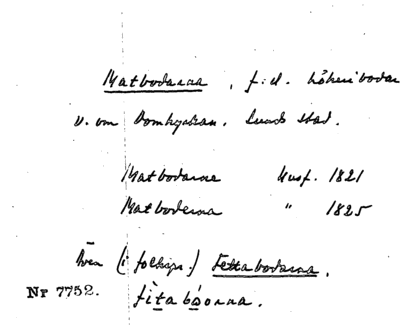 Matbodarna, f.d. hökeribodar
v. om Domkyrkan. Lunds stad.
Matbodarne Husf. 1821
Matboderna " 1825
Även (i folkspr.) Fettabodarna.
Nr 7752. fìtabóonna.